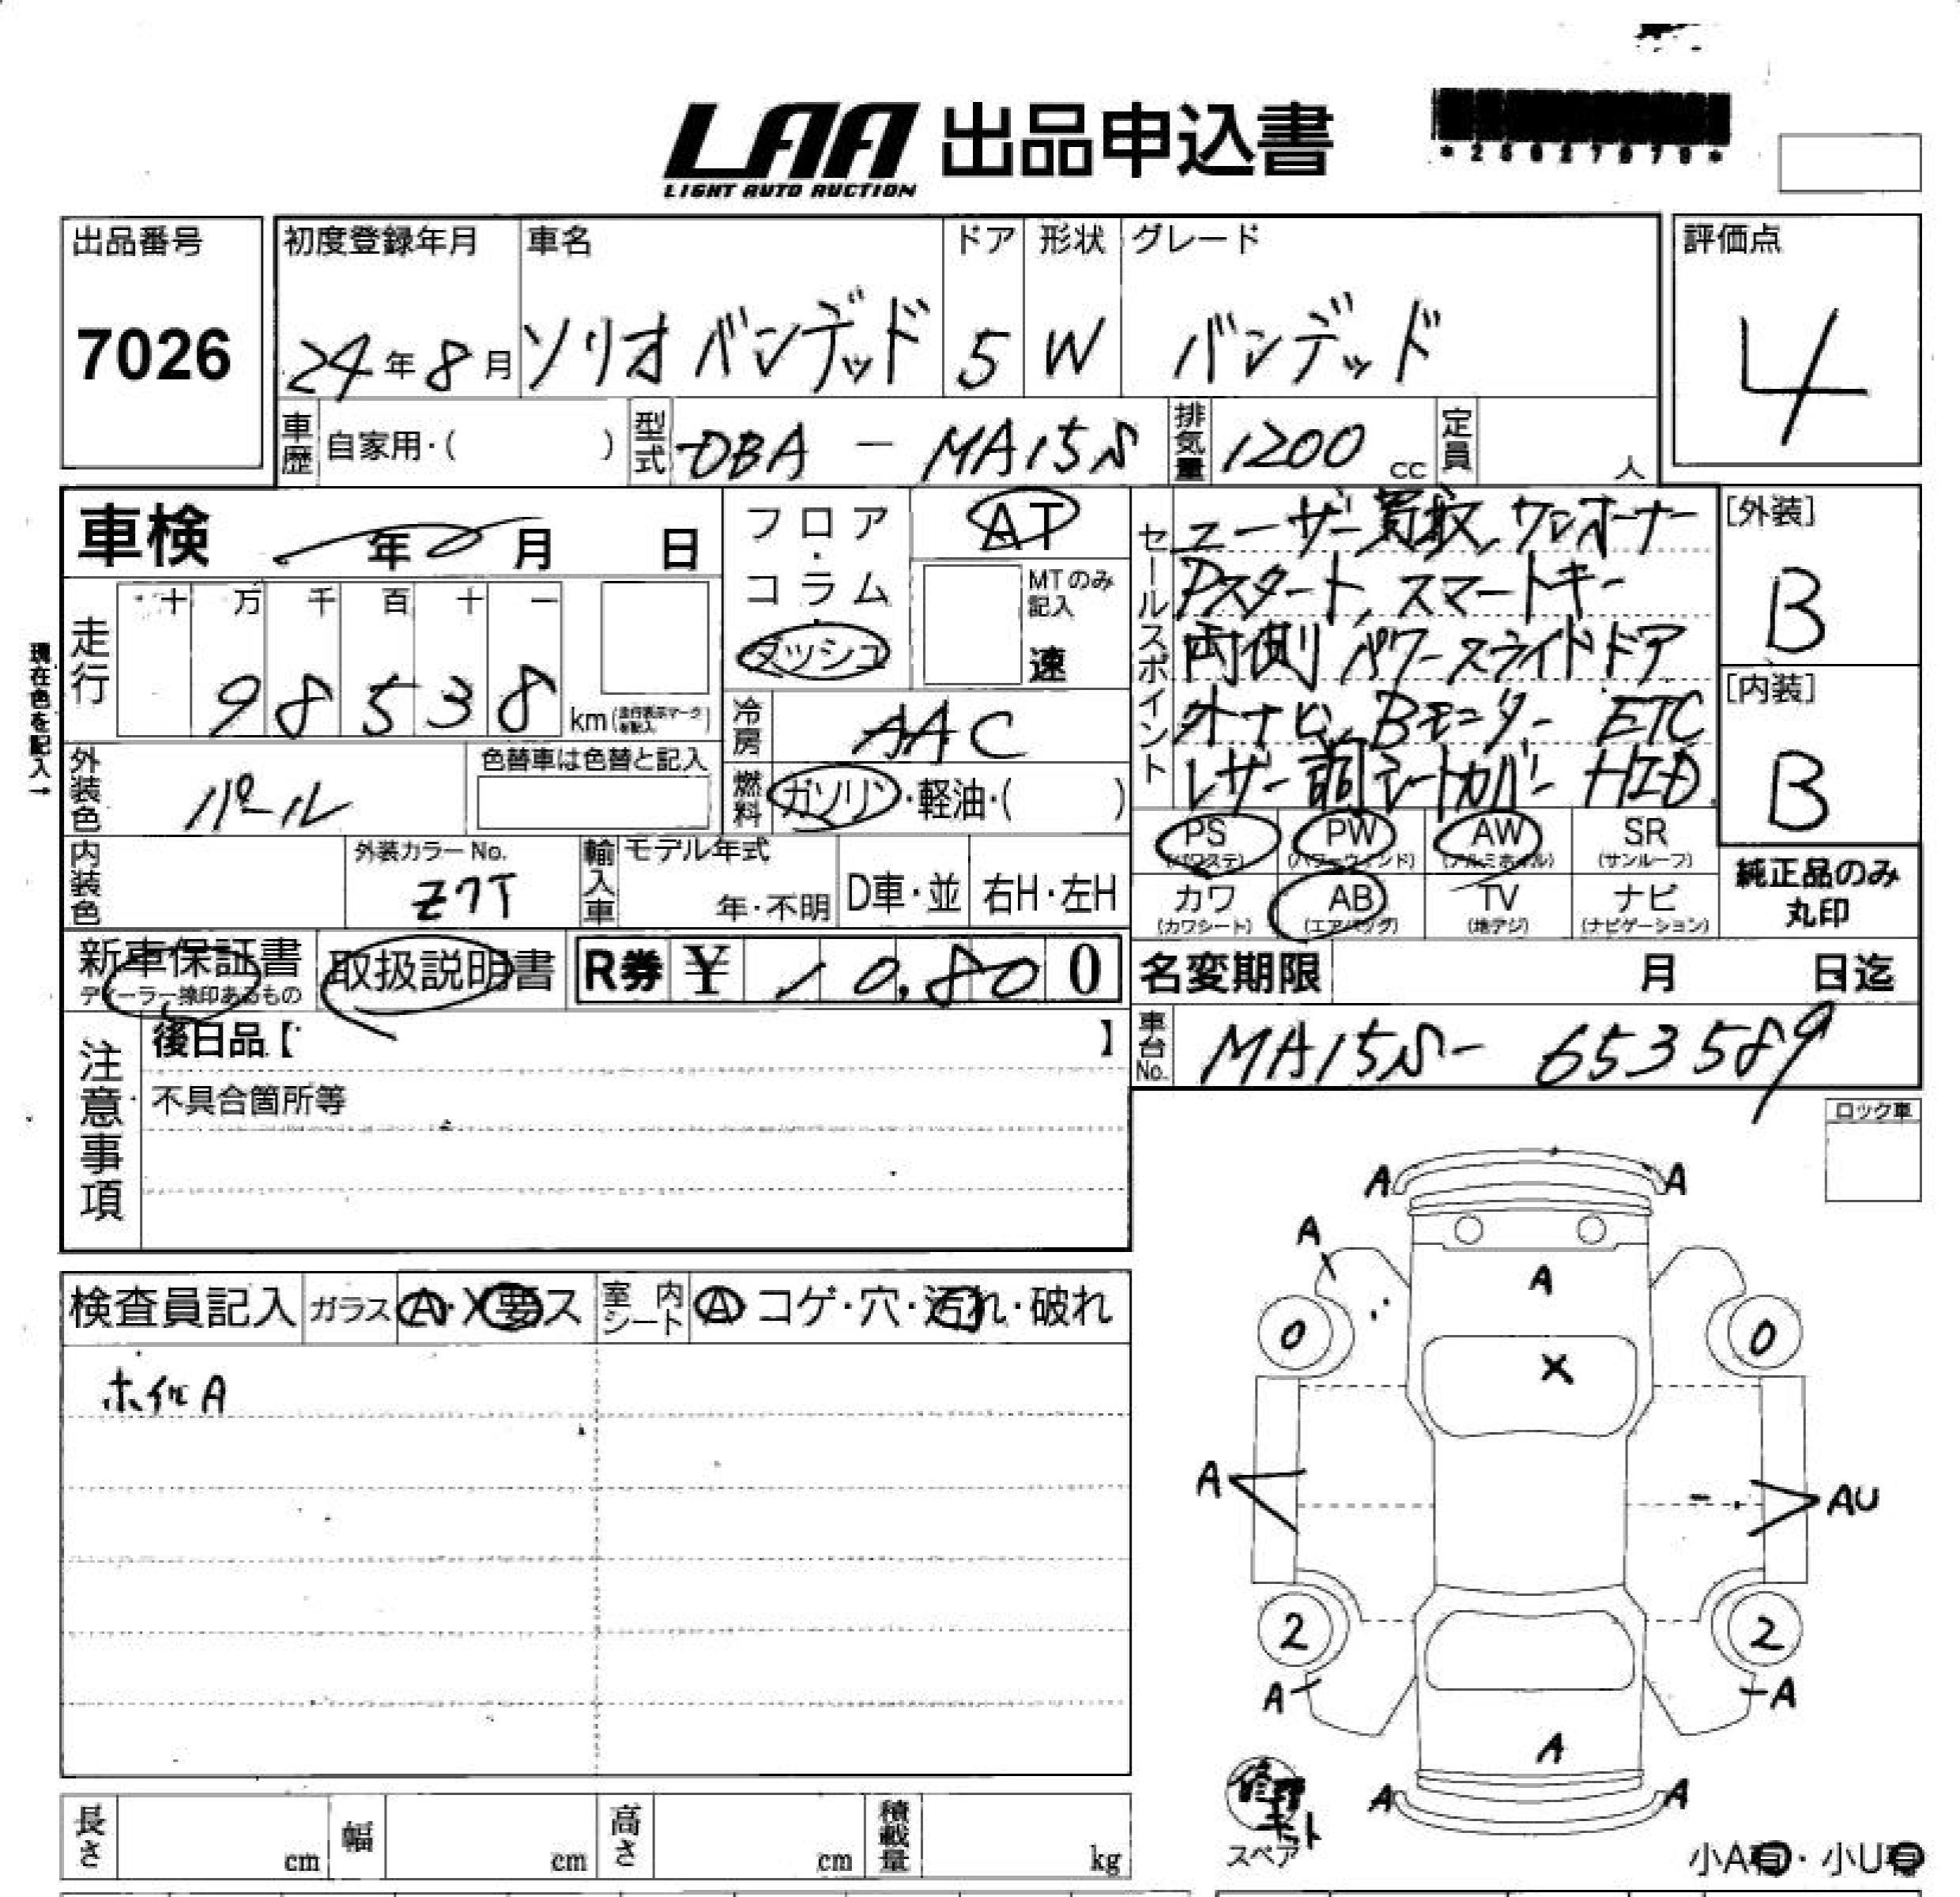 LAA 出品申込書
LIGHT AUTO AUCTION
出品番号
7026
初度登録年月
24年8月
車名
ソリオ バンデッド
ドア
5
形状
W
グレード
バンデッド
評価点
4
車歴
自家用・( )
型式
DBA - MA15S
排気量
1200 cc
定員
人
車検
年 月 日
フロア・コラム・ダッシュ
AT
MTのみ記入
速
走行
十 万 千 百 十 一
9 8 5 3 8
km
現在色を記入→
冷房
AAC
外装色
パール
色替車は色替と記入
燃料
ガソリン・軽油・( )
内装色
外装カラーNo.
Z7T
輸入車
モデル年式
年・不明
D車・並
右H・左H
セールスポイント
ユーザー買取,ワンオーナー
Pスタート,スマートキー
両側パワースライドドア
オナビ,Bモニター ETC
レザー調シートカバー HID
[外装]
B
[内装]
B
PS
(パワステ)
PW
(パワーウィンド)
AW
(アルミホイル)
SR
(サンルーフ)
カワ
(カワシート)
AB
(エアバッグ)
TV
(地デジ)
ナビ
(ナビゲーション)
純正品のみ
丸印
新車保証書
ディーラー捺印あるもの
取扱説明書
R券 ¥ 10,800
名変期限 月 日迄
車台No.
MA15S- 653589
注意事項
後日品【 】
不具合箇所等
ロック車
検査員記入
ガラス
A・X要ス
室内シート
A コゲ・穴・汚れ・破れ
ホイルA
A A
A
A
0 0
X
A AU
2 2
A A
A
A A
修理キット
スペア
長さ cm
幅 cm
高さ cm
積載量 kg
小A有・小U有